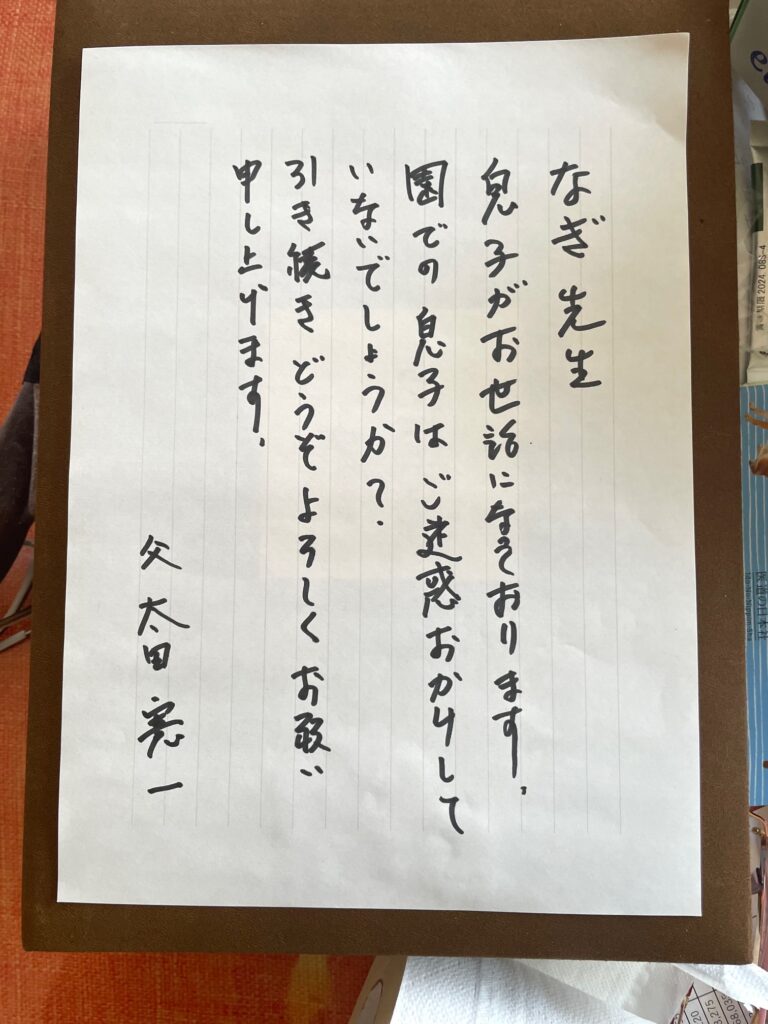 なぎ先生
息子がお世話になっております。
園での息子はご迷惑おかけして
いないでしょうか?
引き続きどうぞよろしくお願い
申し上げます。
父 太田憲一
賞味期限 2024.08
医道の日本社